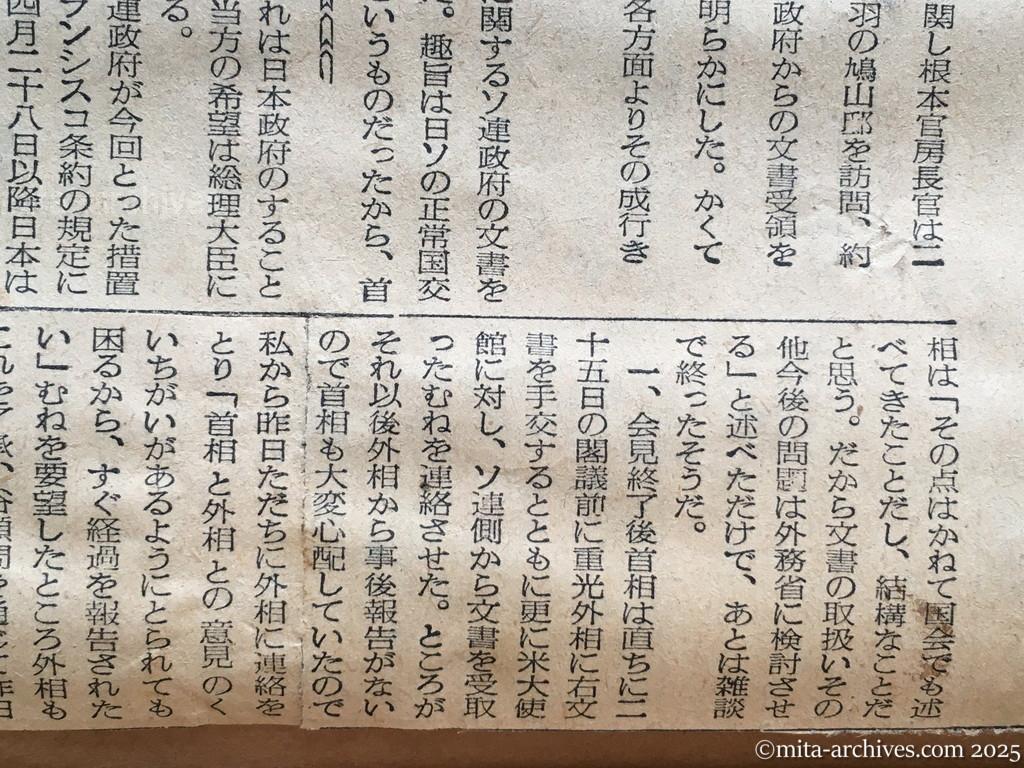 関し根本官房長官は二
羽の鳩山邸を訪問、約
政府からの文書受領を
明らかにした。かくて
各方面よりその成行き
に関するソ連政府の文書を
。趣旨は日ソの正常国交
いうものだったから、首
れは日本政府のすること
当方の希望は総理大臣に
る。
連政府が今回とった措置
フランシスコ条約の規定に
四月二十八日以降日本は
相は「その点はかねて国会でも述
べてきたことだし、結構なことだ
と思う。だから文書の取扱いその
他今後の問題は外務省に検討させ
る」と述べただけで、あとは雑談
で終ったそうだ。
一、会見終了後首相は直ちに二
十五日の閣議前に重光外相に右文
書を手交するとともに更に米大使
館に対し、ソ連側から文書を受取
ったむねを連絡させた。ところが
それ以後外相から事後報告がない
ので首相も大変心配していたので
私から昨日ただちに外相に連絡を
とり「首相と外相との意見のく
いちがいがあるようにとられても
困るから、すぐ経過を報告された
い」むねを要望したところ外相も
©mita-archives.com 2025